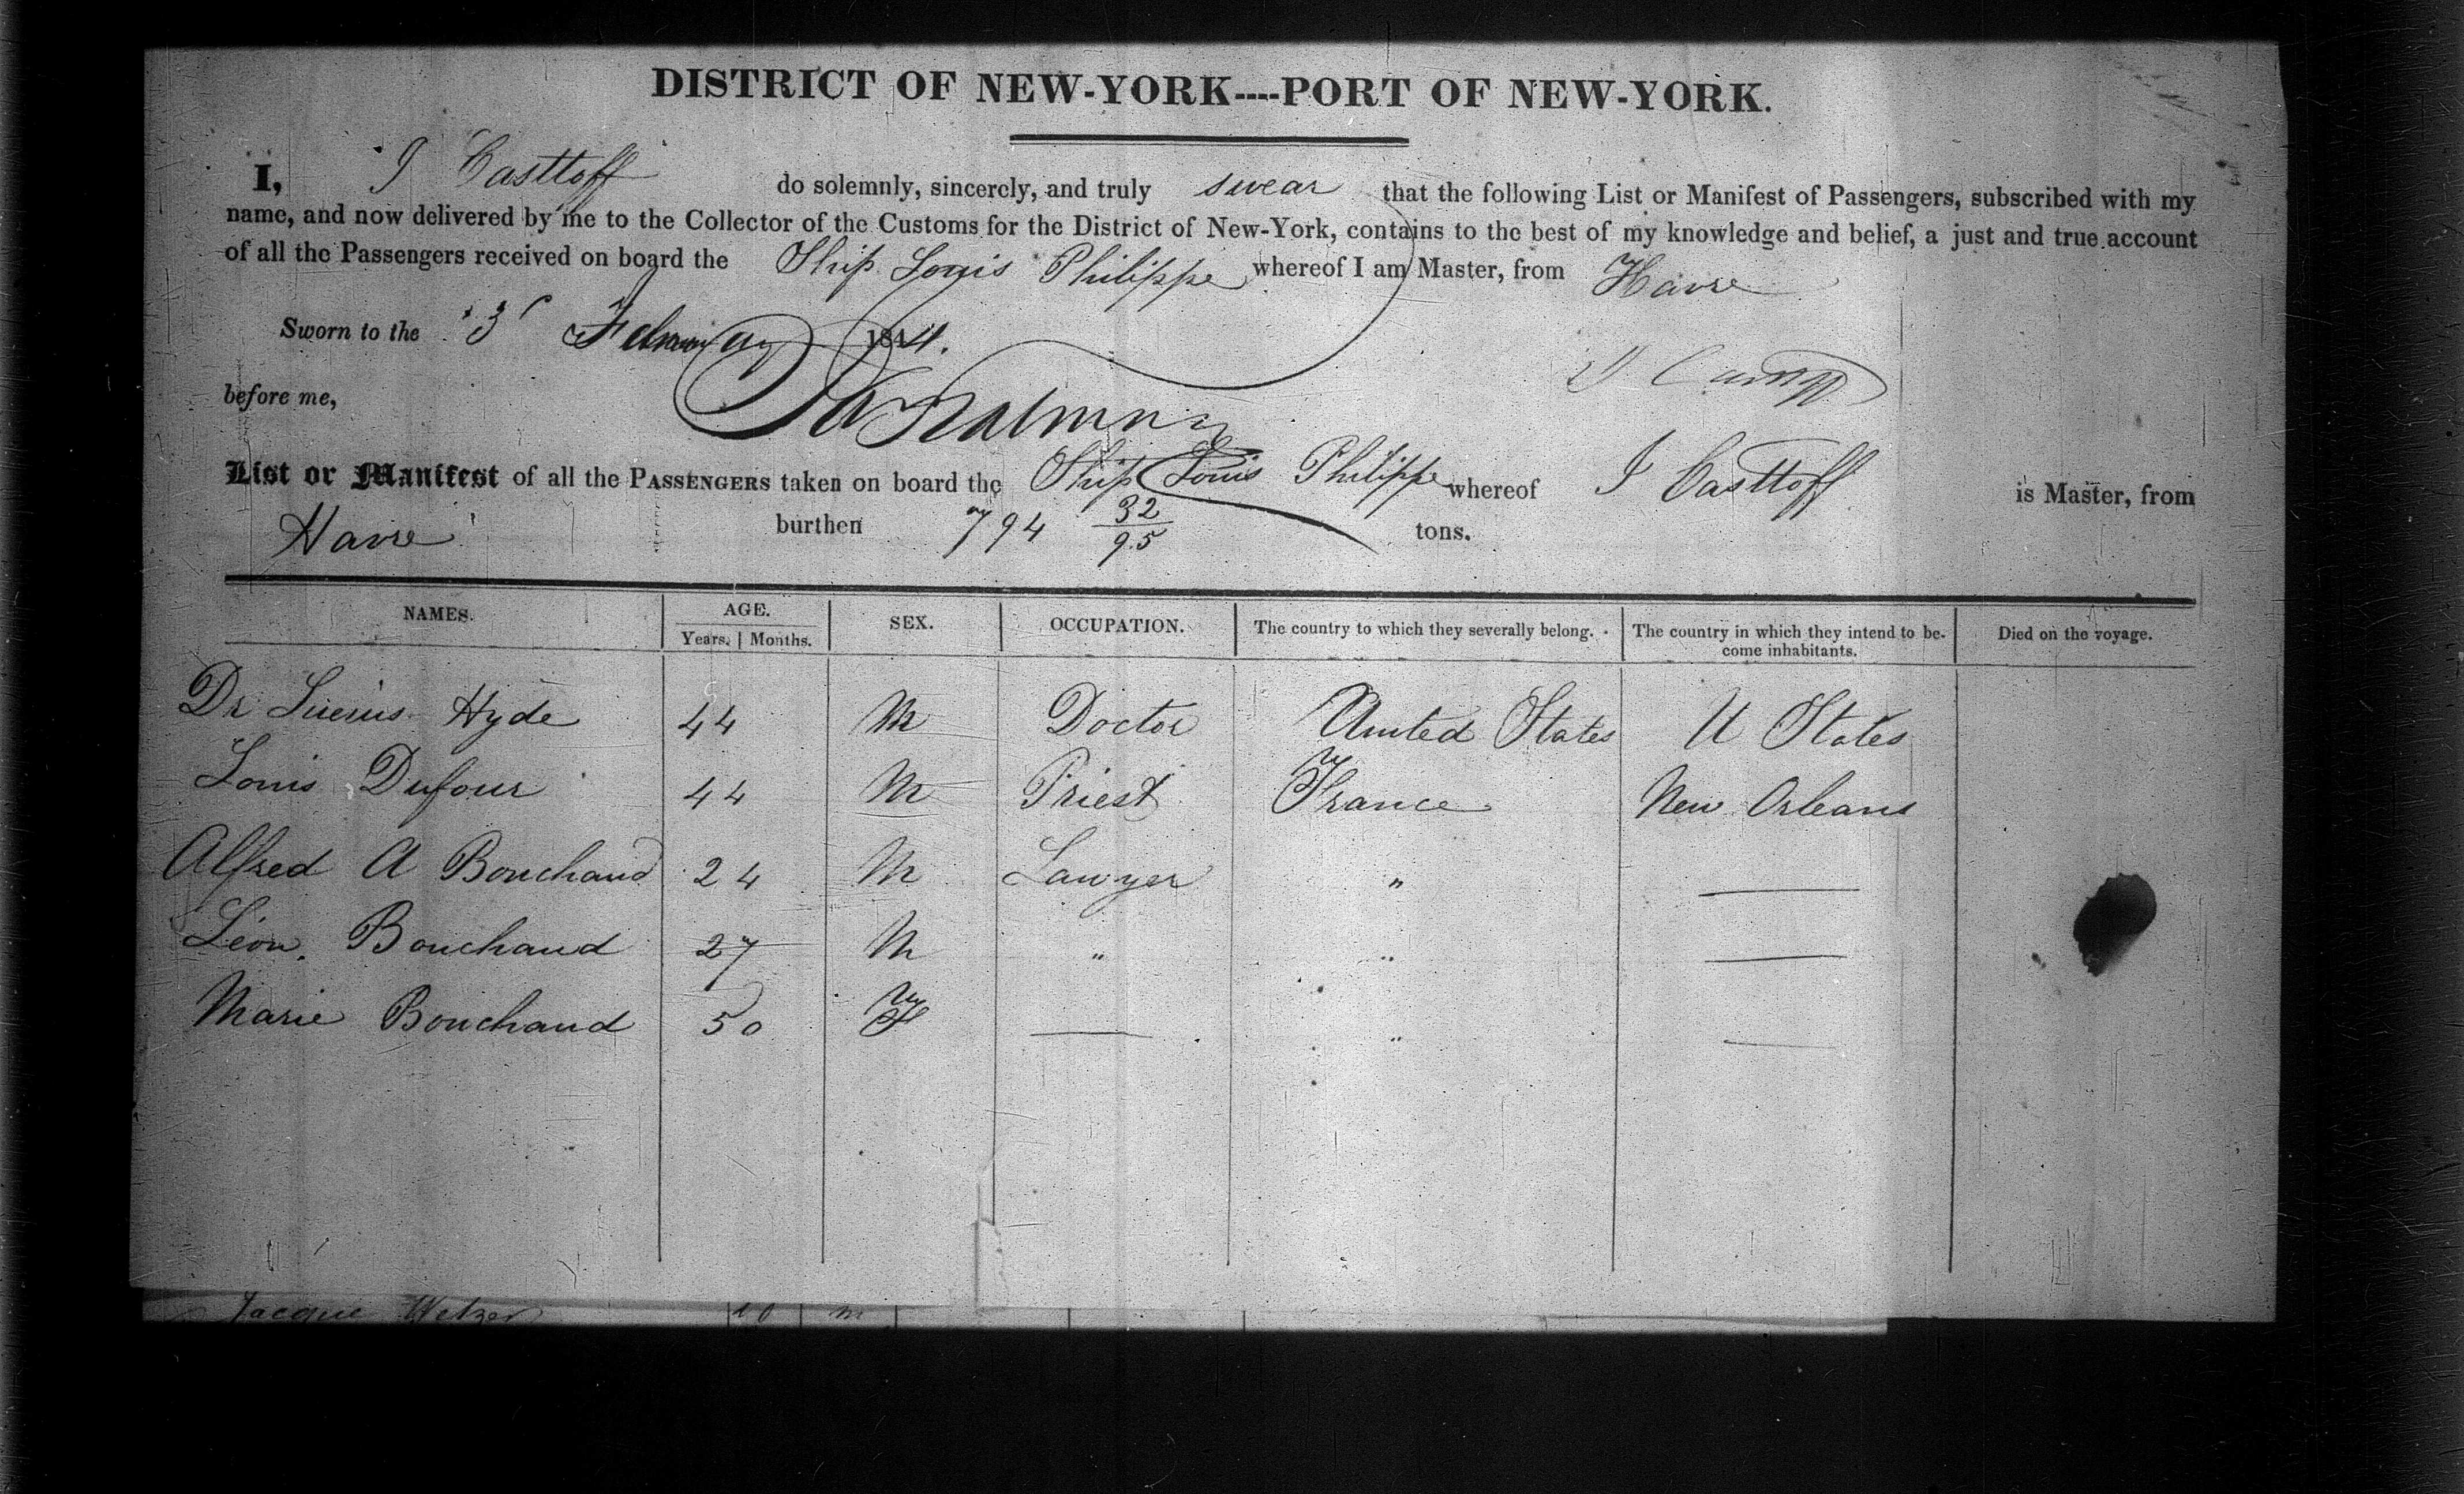 DISTRICT OF NEW-YORK----PORT OF NEW-YORK.
I, J Casttoff do solemnly, sincerely, and truly swear that the following List or Manifest of Passengers, subscribed with my
name, and now delivered by me to the Collector of the Customs for the District of New-York, contains to the best of my knowledge and belief, a just and true account
of all the Passengers received on board the Ship Louis Philippe whereof I am Master, from Havre
Sworn to the 3 February 1844.
before me,
List or Manifest of all the PASSENGERS taken on board the Ship Louis Philippe whereof J Casttoff is Master, from
Havre burthen 794 32/95 tons.
NAMES. AGE. SEX. OCCUPATION. The country to which they severally belong. The country in which they intend to be- Died on the voyage.
Years. | Months. come inhabitants.
Dr Hyde 44 M Doctor United States U States
Louis Dufour 44 M Priest France New Orleans
Alfred A Bouchaud 24 M Lawyer " —
Léon Bouchaud 27 M " " —
Marie Bouchaud 50 F — " —
Jacque Metzer M